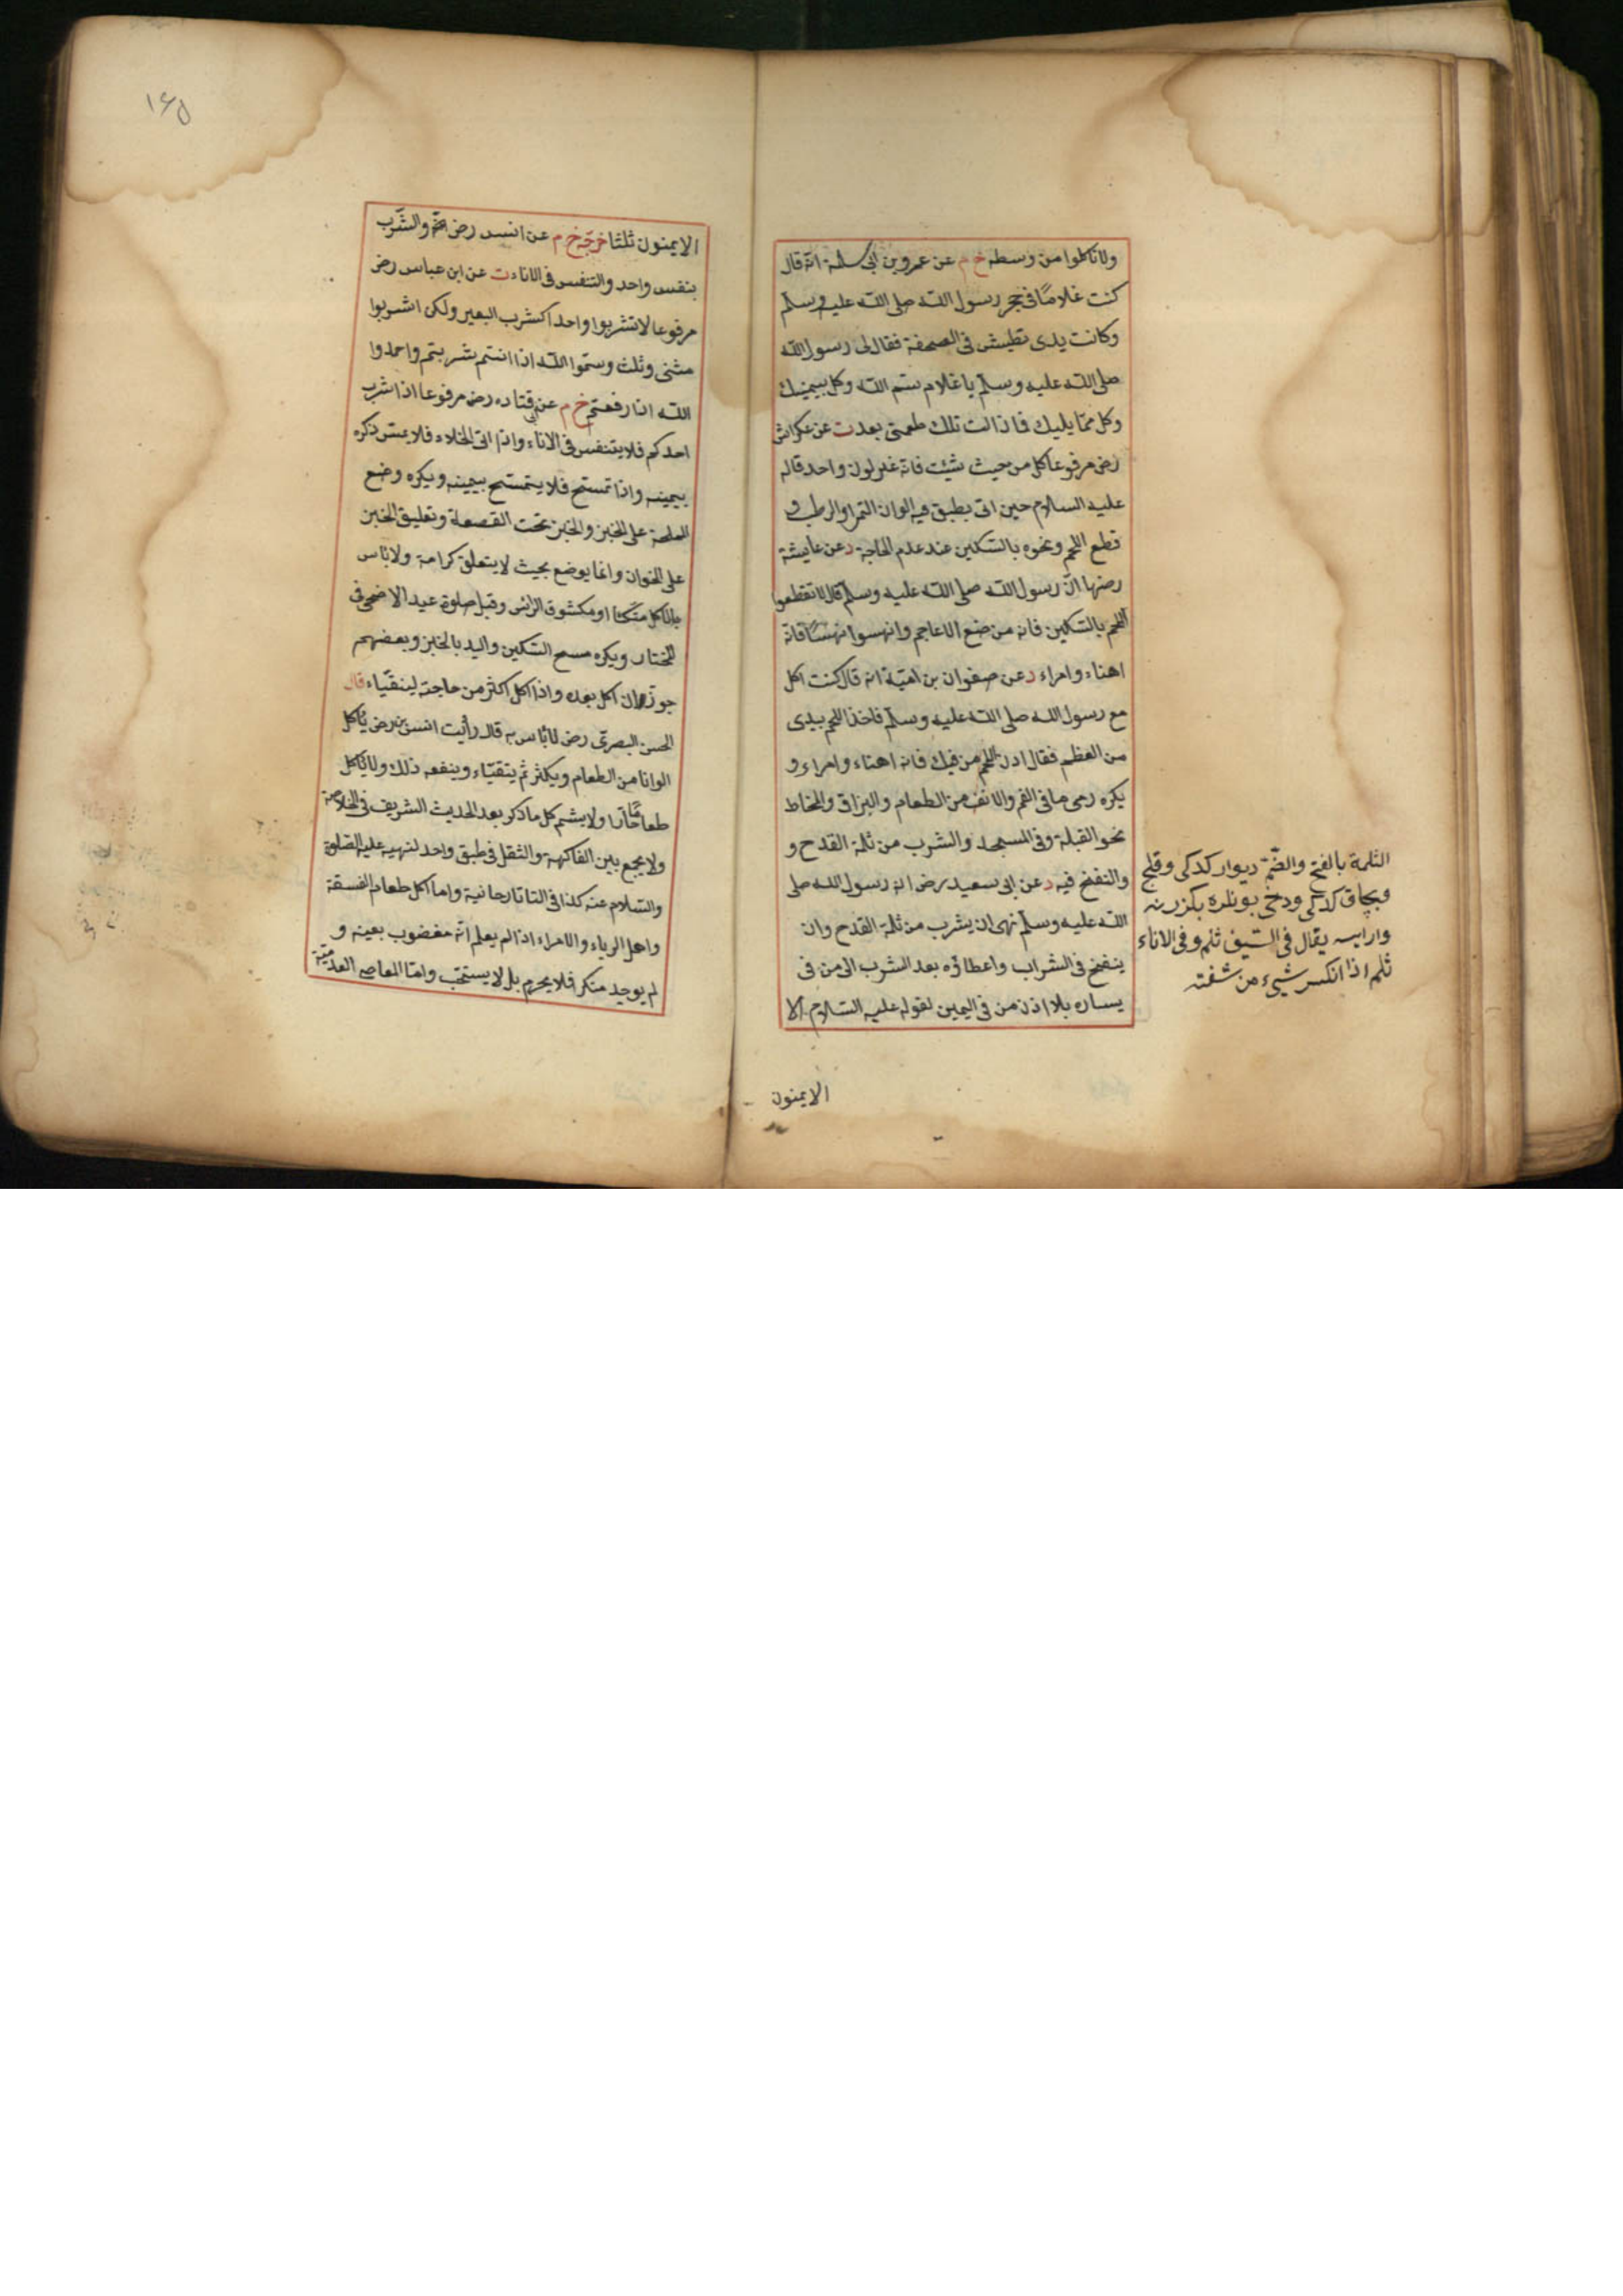 ولا تاكلوا من وسطه خ م عن عمرو بن ابى سلمة انه قال
كنت غلامًا فى حجر رسول الله صلى الله عليه وسلم
وكانت يدى تطيش فى الصحفة فقال لى رسول الله
صلى الله عليه وسلم يا غلام سم الله وكل بيمينك
وكل مما يليك فما زالت تلك طعمتى بعد ت عن عكراش
رض مرفوعا كل من حيث شئت فانه غير لون واحد قاله
عليه السلام حين اتى بطبق فيه الوان التمر او الرطب و
قطع اللحم ونحوه بالسكين عند عدم الحاجة د عن عايشة
رضها ان رسول الله صلى الله عليه وسلم قال لا تقطعوا
اللحم بالسكين فانه من صنع الاعاجم وانهسوا نهسًا فانه
اهناء وامراء د عن صفوان بن امية انه قال كنت اكل
مع رسول الله صلى الله عليه وسلم فاخذ اللحم بيدى
من العظم فقال ادن اللحم من فيك فانه اهناء وامراء و
يكره رمى ما فى الفم والانف من الطعام والبزاق والمخاط
نحو القبلة وفى المسجد والشرب من ثلمة القدح و
والنفخ فيه د عن ابى سعيد رض ان رسول الله صلى
الله عليه وسلم نهى ان يشرب من ثلمة القدح وان
ينفخ فى الشراب واعطاؤه بعد الشرب الى من فى
يساره بلا اذن من فى اليمين لقوله عليه السلام الا
الايمنون
الثلمة بالفتح والضم ديوار كدكى وقلج
وبچاق كدكى ودخى بونلره بكزر نه
وارايسه يقال فى السيف ثلم وفى الاناء
ثلم اذا انكسر شىء من شفته
١٦٥
الايمنون ثلثا خرجه خ م عن انس رض والشرب
بنفس واحد والتنفس فى الاناء ت عن ابن عباس رض
مرفوعا لا تشربوا واحدا كشرب البعير ولكن اشربوا
مثنى وثلث وسموا الله اذا انتم شربتم واحمدوا
الله اذا رفعتم خ م عن ابى قتاده رض مرفوعا اذا شرب
احدكم فلا يتنفس فى الاناء واذا اتى الخلاء فلا يمس ذكره
بيمينه واذا تمسح فلا يتمسح بيمينه ويكره وضع
المملحة على الخبز والخبز تحت القصعة وتعليق الخبز
على الخوان وانما يوضع بحيث لا يتعلق كرامة ولا بأس
بالاكل متكئا او مكشوف الرأس وقبل صلوة عيد الاضحى فى
المختار ويكره مسح السكين واليد بالخبز وبعضهم
جوز ان اكل بعده واذا اكل اكثر من حاجته ليتقياء قال
الحسن البصرى رض لا بأس به قال رأيت انس بن رض يأكل
الوانا من الطعام ويكثر ثم يتقياء وينفعه ذلك ولا يأكل
طعاما حارا ولا يشم كل ما ذكر بعد الحديث الشريف فى الخلاصة
ولا يجمع بين الفاكهة والثفل فى طبق واحد لنهيه عليه الصلوة
والسلام عنه كذا فى التاتارخانية واما اكل طعام الفسقة
واهل الرياء والامراء اذا لم يعلم انه مغصوب بعينه و
لم يوجد منكر فلا يحرم بل لا يستحب واما المعاصى العدمية